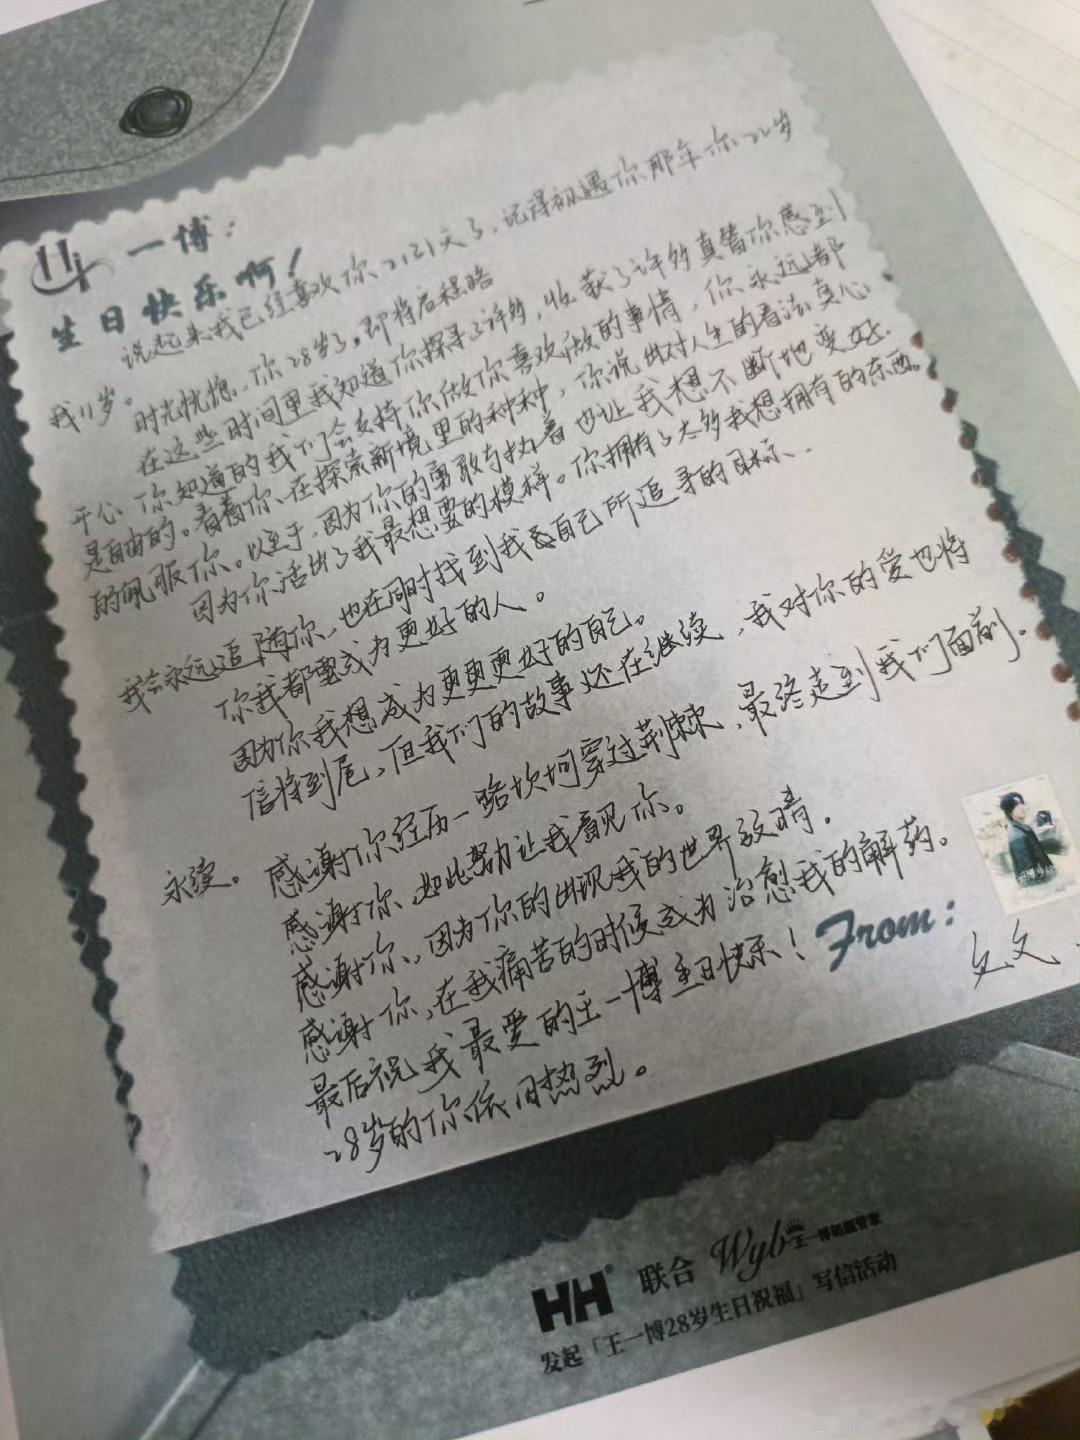 Hi
一博：
生日快乐啊！
说起来我已经喜欢你2121天了，记得初遇你那年你22岁
我11岁。
时光恍惚，你28岁了。即将启程路
在这些时间里我知道你探寻了许多，收获了许多真替你感到
开心，你知道的我们会支持你做你喜欢做的事情，你永远都
是自由的。看着你、在探索新境里的种种，你说出对人生的看法真心
的佩服你。以至于，因为你的勇敢与执着也让我想不断地变好.
因为你活出了我最想要的模样。你拥有了太多我想拥有的东西。
我会永远追随你，也在同时找到我自己所追寻的目标、
你我都要成为更好的人。
因为你我想成为更更更好的自己。
信将到尾，但我们的故事还在继续，我对你的爱也将
永续。
感谢你经历一路坎坷穿过荆棘，最终走到我们面前.
感谢你、如此努力让我看见你。
感谢你，因为你的出现我的世界放晴.
感谢你，在我痛苦的时候成为治愈我的解药。
最后祝我最爱的王一博生日快乐！
28岁的你依旧热烈。
From：
文文
HH® 联合 Wyb 王一博
发起「王一博28岁生日祝福」写信活动